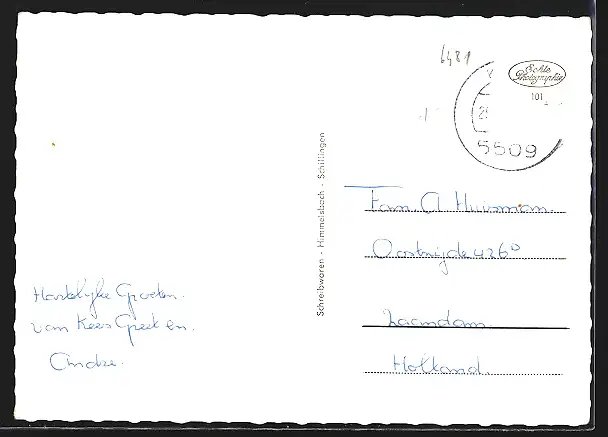 6481
Echte
Photographie
101
5509
Schreibwaren - Himmelsbach - Schillingen
Fam. A Huisman.
Oostzijde 426°
Zaandam.
Holland.
Hartelijke Groeten.
van Kees Greet en.
Andre.